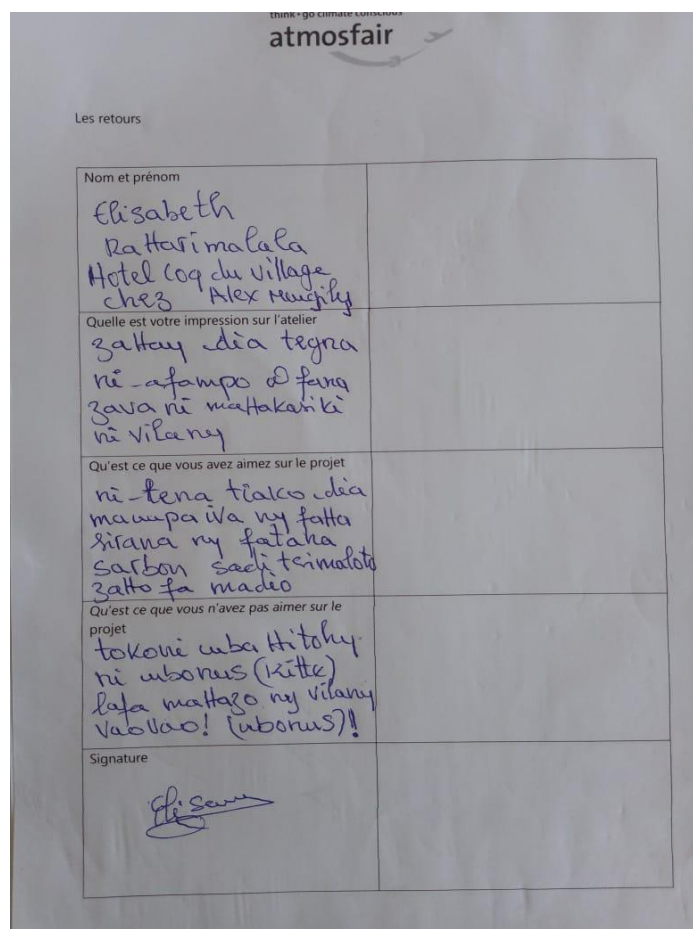 think • go climate conscious
atmosfair
Les retours
Nom et prénom
Elisabeth
RaHarimalala
Hotel Coq du village
chez Alex
Quelle est votre impression sur l'atelier
zaHay dia tegna
ni-afampo
zava ni maHakasiki
ni vilany
Qu'est ce que vous avez aimez sur le projet
ni-tena tiako dia
ny faHa
sirana ny fataha
sarbon sadi tsimaloto
zaHo fa madio
Qu'est ce que vous n'avez pas aimer sur le
projet
tokoni mba Hitohy
ni mbonus
lafa maHazo ny vilany
vaovao! (mbonus)!!
Signature